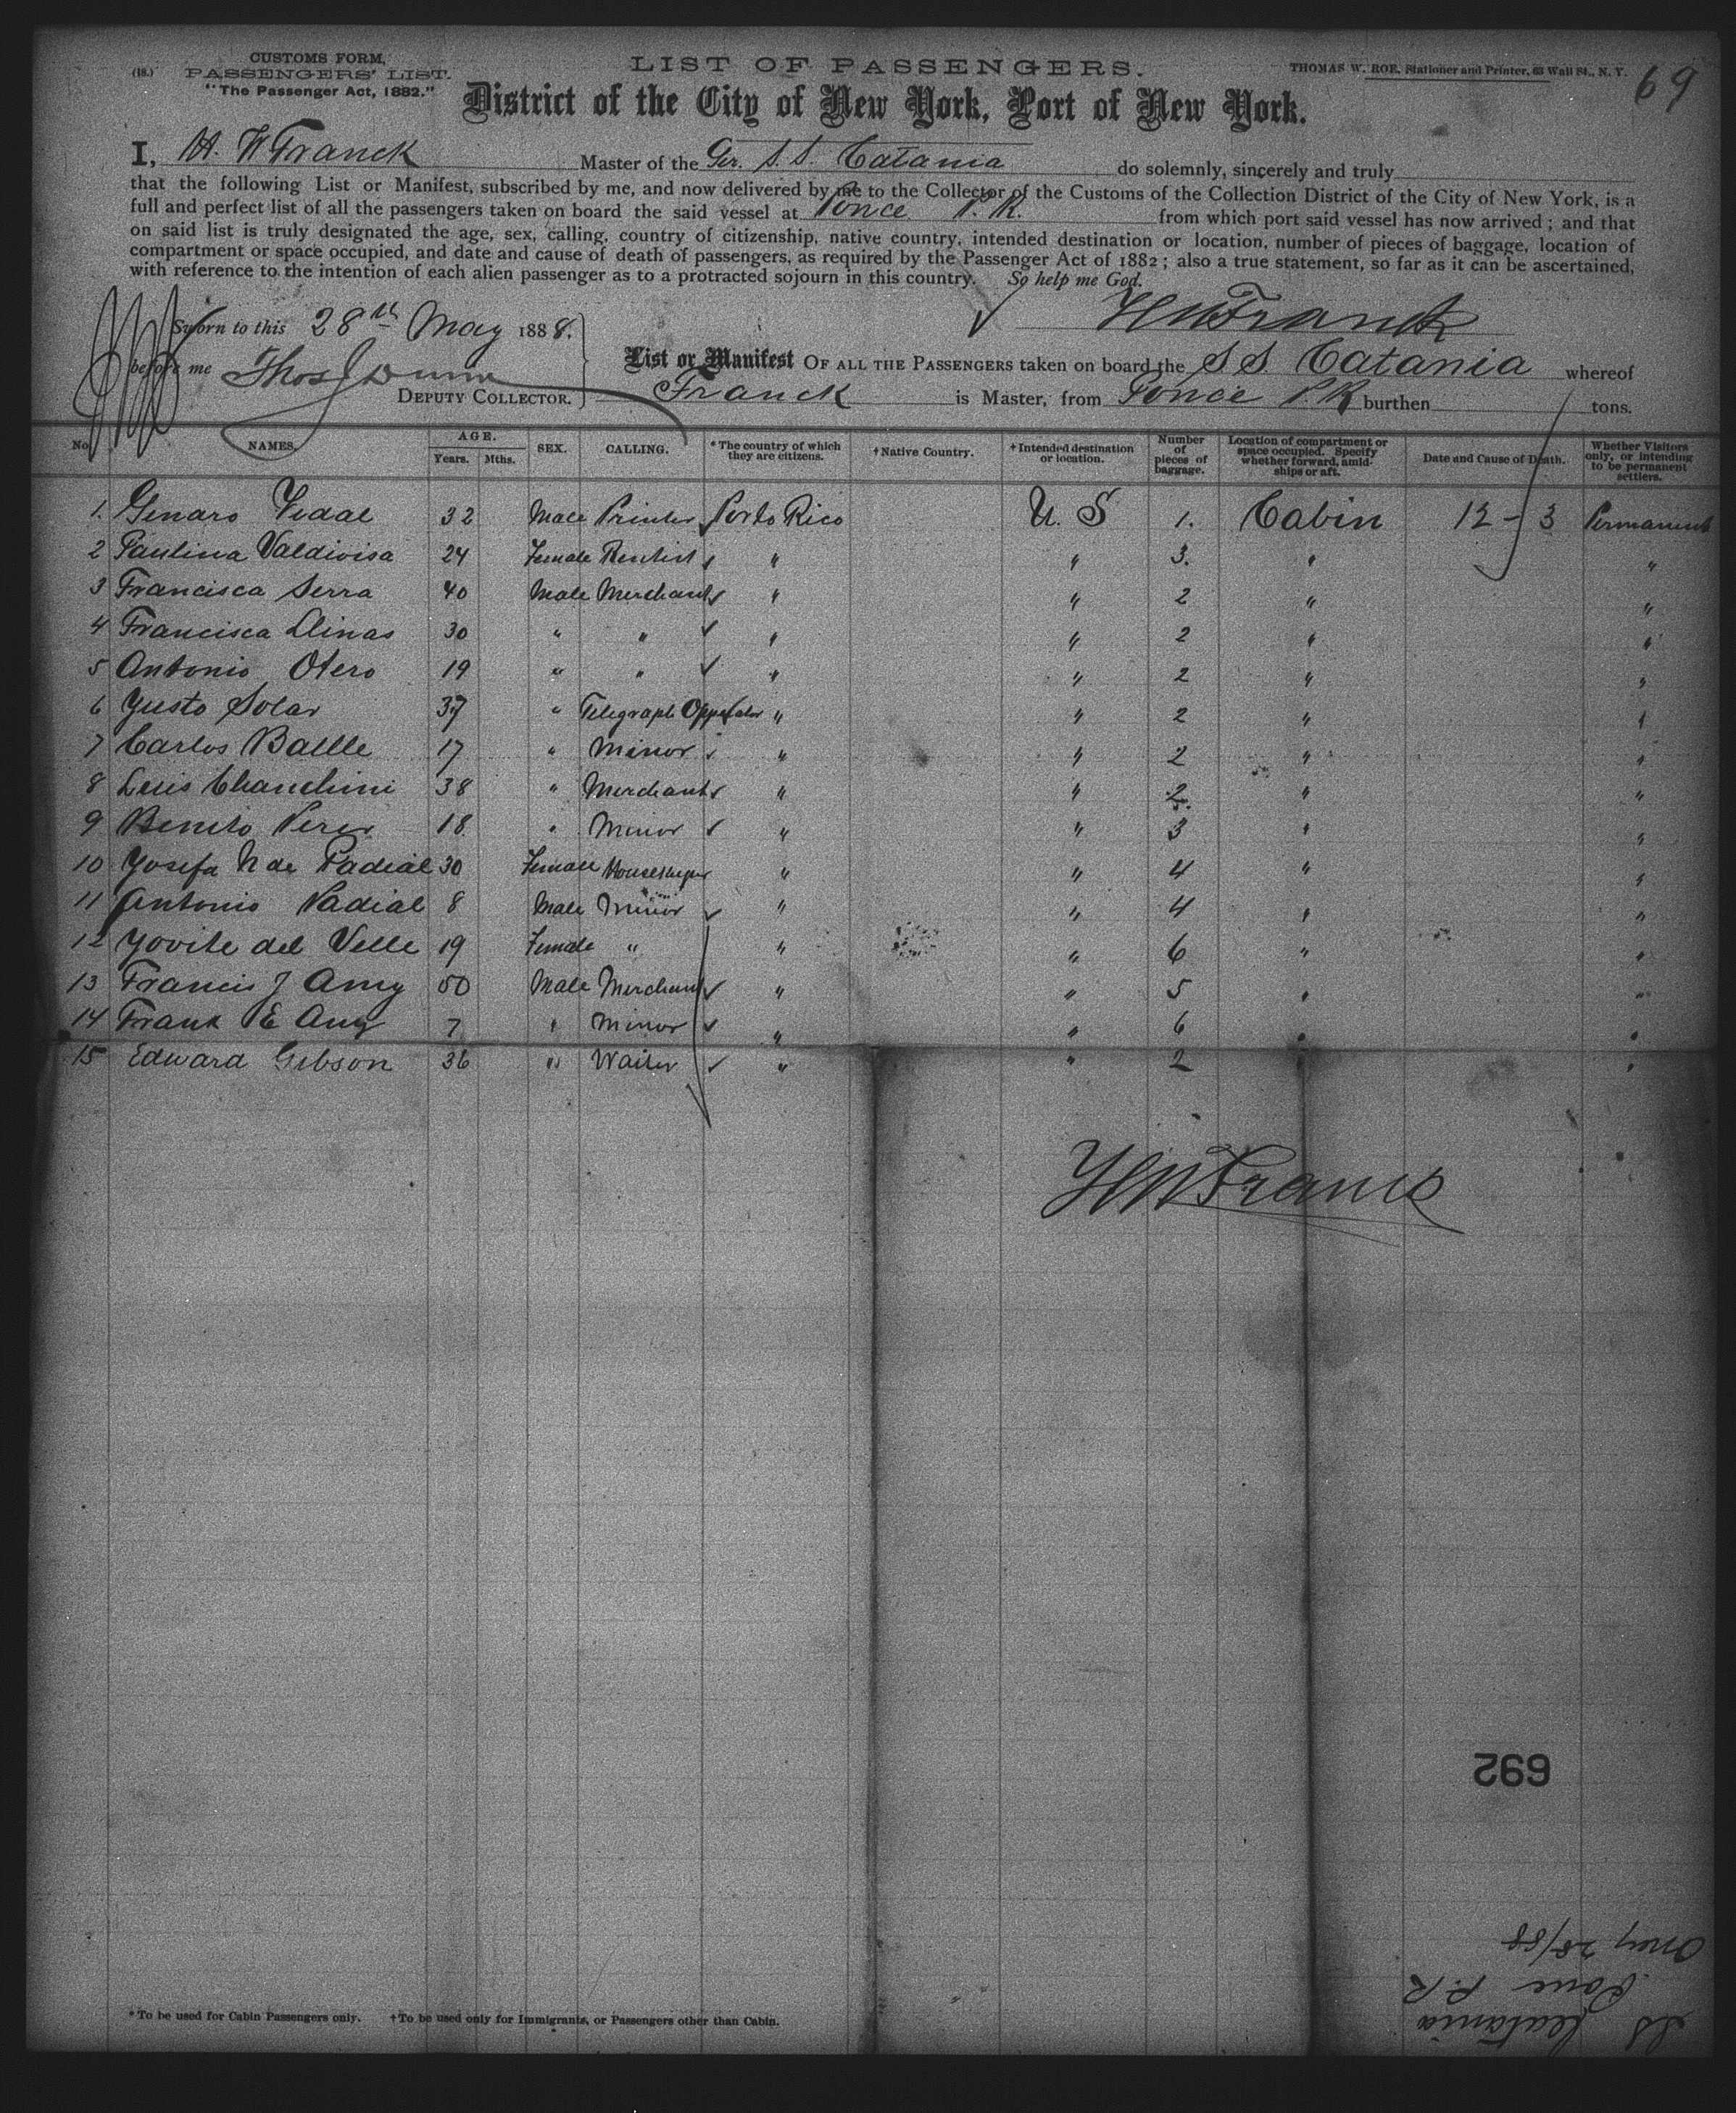 (18.)
CUSTOMS FORM,
PASSENGERS' LIST.
"The Passenger Act, 1882."
LIST OF PASSENGERS.
THOMAS W. ROE, Stationer and Printer, 63 Wall St., N. Y.
69
District of the City of New York, Port of New York.
I, H. W Franck Master of the Ger. S. S. Catania do solemnly, sincerely and truly
that the following List or Manifest, subscribed by me, and now delivered by me to the Collector of the Customs of the Collection District of the City of New York, is a
full and perfect list of all the passengers taken on board the said vessel at Ponce P. R. from which port said vessel has now arrived; and that
on said list is truly designated the age, sex, calling, country of citizenship, native country, intended destination or location, number of pieces of baggage, location of
compartment or space occupied, and date and cause of death of passengers, as required by the Passenger Act of 1882; also a true statement, so far as it can be ascertained,
with reference to the intention of each alien passenger as to a protracted sojourn in this country. So help me God.
Sworn to this 28th May 1888.
HWFranck
before me Thos J Dunn
DEPUTY COLLECTOR.
List or Manifest OF ALL THE PASSENGERS taken on board the S S. Catania whereof
Franck is Master, from Ponce P.R burthen tons.
No. NAMES. AGE. Years. Mths. SEX. CALLING. *The country of which they are citizens. †Native Country. †Intended destination or location. Number of pieces of baggage. Location of compartment or space occupied. Specify whether forward, amidships or aft. Date and Cause of Death. Whether Visitors only, or intending to be permanent settlers.
1. Genaro Vidal 32 Male Printer Porto Rico U. S 1. Cabin 12 - 3 Permanent
2 Paulina Valdivisa 24 Female Dentist " " 3. " "
3 Francisca Serra 40 Male Merchant " " 2 " "
4 Francisca Llinas 30 " " " " 2 " "
5 Antonio Otero 19 " " " " 2 " "
6 Yusto Solar 37 " Telegraph Opperator " " 2 " "
7 Carlos Batlle 17 " Minor " " 2 " "
8 Luis Chanchini 38 " Merchant " " 2. " "
9 Benito Perez 18. " Minor " " 3 " "
10 Yosefa N de Padial 30 Female Housekeeper " " 4 " "
11 Antonio Padial 8 Male Minor " " 4 " "
12 Yovite del Velle 19 Female " " " 6 " "
13 Francis J Amy 50 Male Merchant " " 5 " "
14 Frank E Amy 7 " Minor " " 6 " "
15 Edward Gibson 36 " Waiter " " 2 "
HWFranck
692
SS Catania
Ponce P.R
May 28/88
*To be used for Cabin Passengers only. †To be used only for Immigrants, or Passengers other than Cabin.